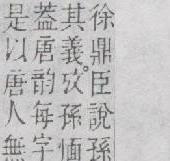 徐鼎臣說孫
其義攷孫愐
葢唐韵每字
是以唐人無